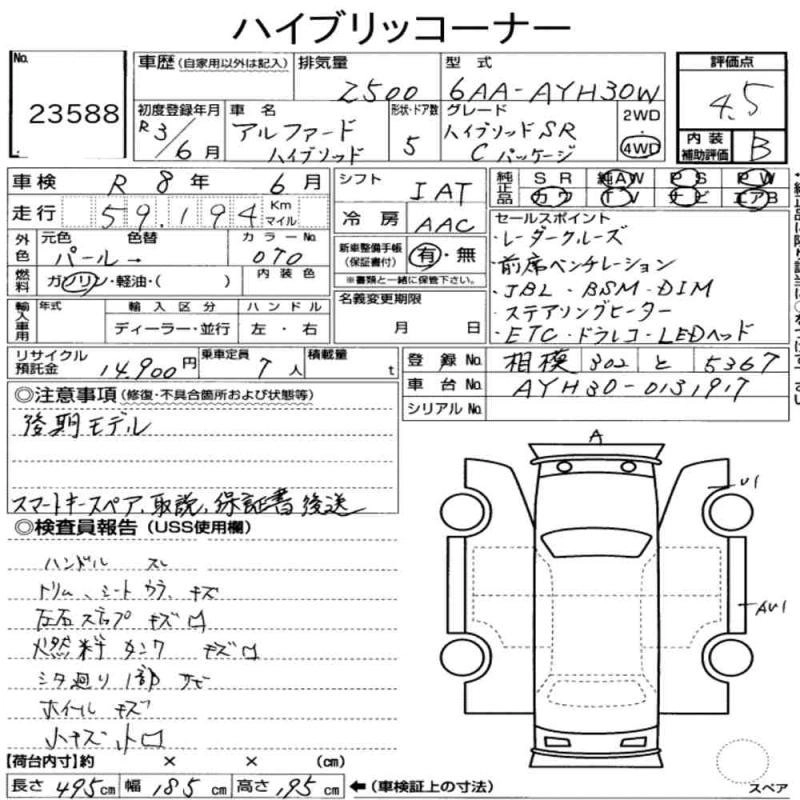 ハイブリッコーナー
No. 23588
車歴 (自家用以外は記入) 排気量 2500 型式 6AA-AYH30W
評価点 4.5
初度登録年月 R3/6月 車名 アルファード ハイブリッド 形状・ドア数 5 グレード ハイブリッドSR Cパッケージ 2WD 4WD
内装補助評価 B
車検 R 8年 6月
シフト IAT
純正品 SR 純AW PS PW カワ TV ナビ エアB
走行 59,194 Km マイル
冷房 AAC
セールスポイント
・レーダークルーズ
・前席ベンチレーション
・JBL・BSM・DIM
・ステアリングヒーター
・ETC・ドラレコ・LEDヘッド
外色 元色 色替 パール→ カラーNo. 070
新車整備手帳(保証書付) 有・無
※書類と一緒に保管下さい。
燃料 ガソリン・軽油・( ) 内装色
名義変更期限 月 日
輸入車用 年式 輸入区分 ハンドル
ディーラー・並行 左・右
リサイクル預託金 14,900円 乗車定員 7人 積載量 t
登録No. 相模 302 と 5367
車台No. AYH30-0131917
シリアルNo.
◎注意事項 (修復・不具合箇所および状態等)
後期モデル
スマートキースペア、取説、保証書後送
◎検査員報告 (USS使用欄)
ハンドル スレ
トリム、シートウラ、キズ
左右ステップ キズ凹
燃燃料タンク キズ凹
シタ廻り1部サビ
ホイールキズ
小キズ小凹
A
U1
AU1
【荷台内寸】約 × × (cm)
長さ 495cm 幅 185cm 高さ 195cm ←(車検証上の寸法)
スペア